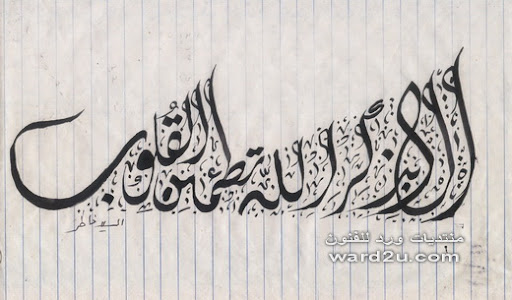 ألا بذكر الله تطمئن القلوب
منتديات ورد للفنون
ward2u.com